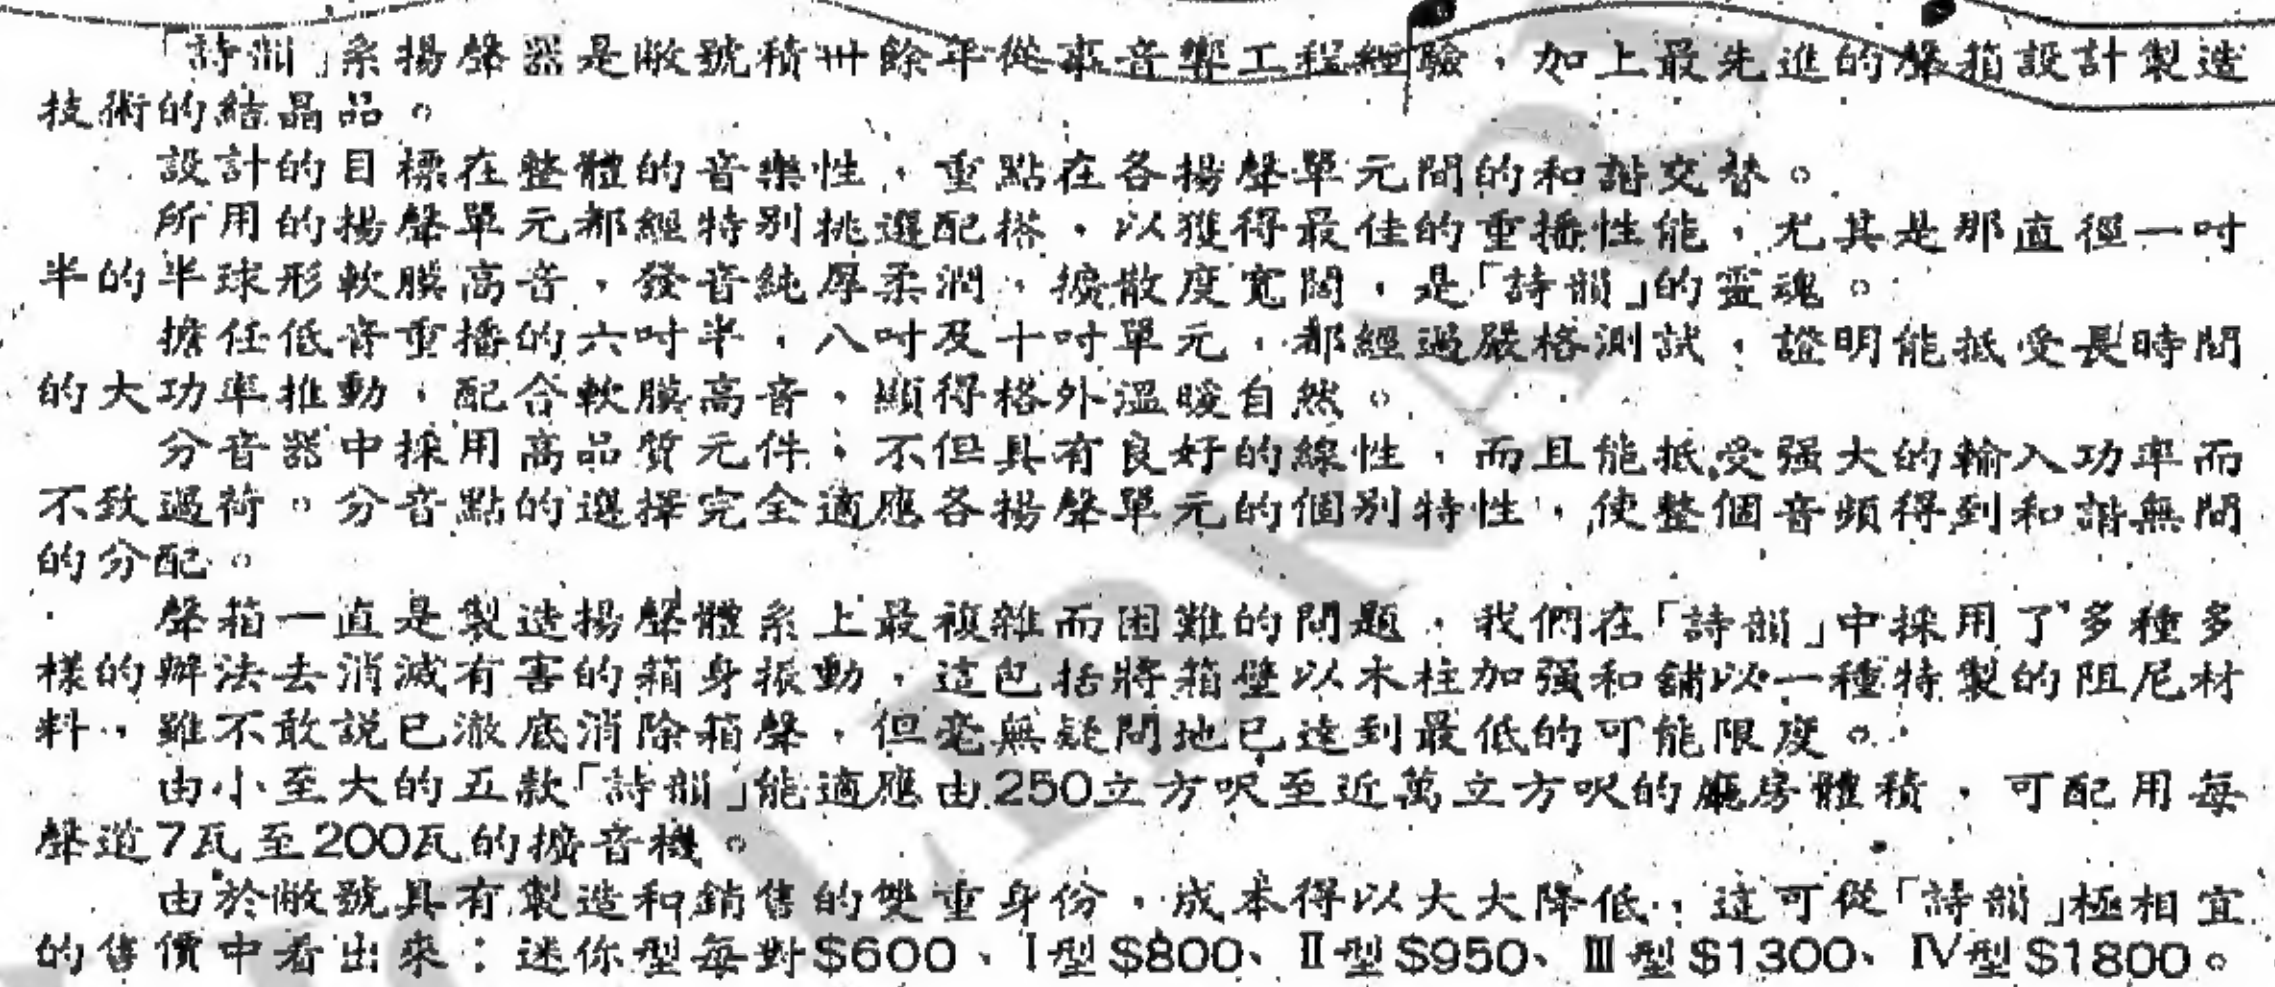 「詩韻」系揚聲器是敝號積卅餘年從事音響工程經驗，加上最先進的聲箱設計製造
技術的結晶品。
設計的目標在整體的音樂性，重點在各揚聲單元間的和諧交替。
所用的揚聲單元都經特別挑選配搭，以獲得最佳的重播性能，尤其是那直徑一吋
半的半球形軟膜高音，發音純厚柔潤，擴散度寬闊，是「詩韻」的靈魂。
擔任低音重播的六吋半，八吋及十吋單元，都經過嚴格測試，證明能抵受長時間
的大功率推動，配合軟膜高音，顯得格外溫暖自然。
分音器中採用高品質元件，不但具有良好的線性，而且能抵受強大的輸入功率而
不致過荷。分音點的選擇完全適應各揚聲單元的個別特性，使整個音頻得到和諧無間
的分配。
聲箱一直是製造揚聲體系上最複雜而困難的問題，我們在「詩韻」中採用了多種多
樣的辦法去消滅有害的箱身振動，這包括將箱壁以木柱加強和鋪以一種特製的阻尼材
料，雖不敢說已澈底消除箱聲，但毫無疑問地已達到最低的可能限度。
由小至大的五款「詩韻」能適應由250立方呎至近萬立方呎的廳房體積，可配用每
聲道7瓦至200瓦的擴音機。
由於敝號具有製造和銷售的雙重身份，成本得以大大降低，這可從「詩韻」極相宜
的售價中看出來：迷你型每對$600、I型$800、II型$950、III型$1300、IV型$1800。
LIBRARY